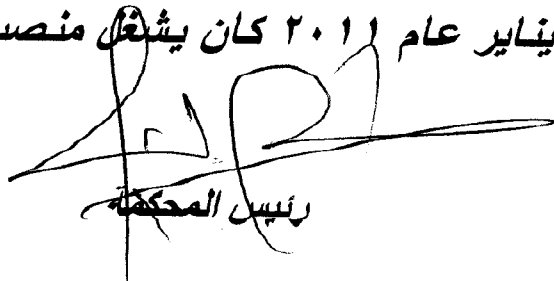 يناير عام ٢٠١١ كان يشغل منصب
رئيس المحكمة